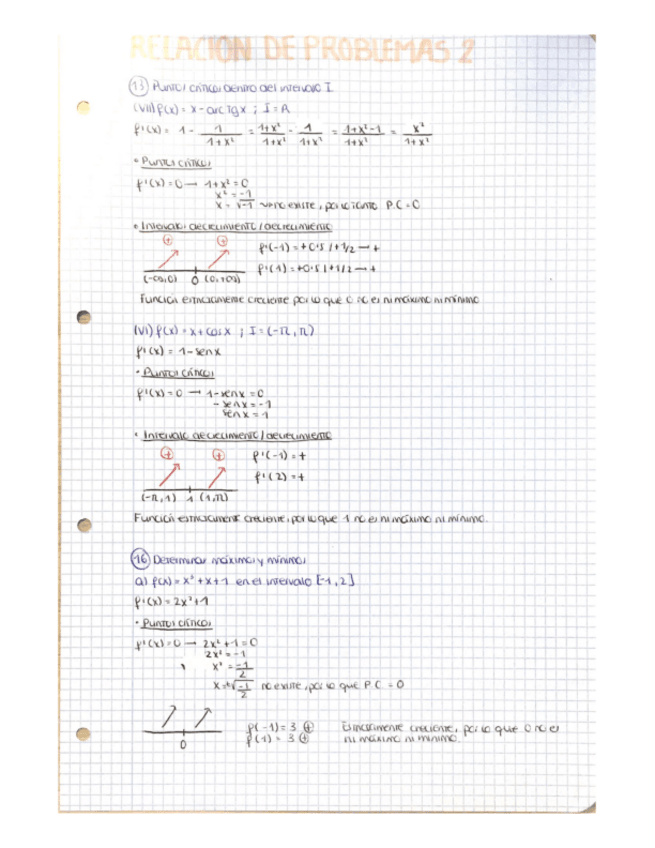 RELACION DE PROBLEMAS 2
13 Puntos críticos dentro del intervalo I.
(VII) f(x) = x - arc tg x ; I = R
f'(x) = 1 - 1/(1+x²) = (1+x²)/(1+x²) - 1/(1+x²) = (1+x²-1)/(1+x²) = x²/(1+x²)
• Puntos críticos
f'(x) = 0 → 1+x² = 0
x² = -1
x = √-1 → no existe, por lo tanto P.C = 0
• Intervalo de crecimiento / decrecimiento
⊕ ⊕ f'(-1) = +0'5 / +1/2 → +
f'(1) = +0'5 / +1/2 → +
(-∞,0) 0 (0,+∞)
Función estrictamente creciente por lo que 0 no es ni máximo ni mínimo
(VI) f(x) = x + cos x ; I = (-π, π)
f'(x) = 1 - sen x
• Puntos críticos
f'(x) = 0 → 1 - sen x = 0
- sen x = -1
sen x = 1
• Intervalo de crecimiento / decrecimiento
⊕ ⊕ f'(-1) = +
f'(2) = +
(-π,1) 1 (1,π)
Función estrictamente creciente, por lo que 1 no es ni máximo ni mínimo.
16 Determinar máximos y mínimos
a) f(x) = x³ + x + 1 en el intervalo [-1, 2]
f'(x) = 2x² + 1
• Puntos críticos
f'(x) = 0 → 2x² + 1 = 0
2x² = -1
x² = -1/2
x = ±√-1/2 no existe, por lo que P.C = 0
f(-1) = 3 ⊕ Estrictamente creciente, por lo que 0 no es
f(1) = 3 ⊕ ni máximo ni mínimo.
0